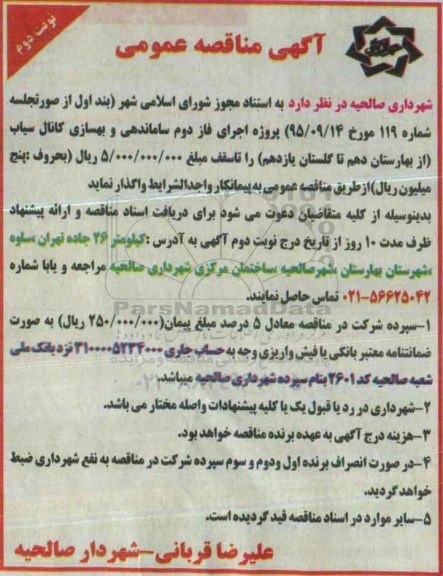 نوبت دوم
آگهی مناقصه عمومی
شهرداری صالحیه در نظر دارد به استناد مجوز شورای اسلامی شهر (بند اول از صورتجلسه
شماره ۱۱۹ مورخ ۹۵/۰۹/۱۴) پروژه اجرای فاز دوم ساماندهی و بهسازی کانال سیاب
(از بهارستان دهم تا گلستان یازدهم) را تاسقف مبلغ ۵/۰۰۰/۰۰۰/۰۰۰ ریال (بحروف :پنج
میلیون ریال)ازطریق مناقصه عمومی به پیمانکار واجدالشرایط واگذار نماید
بدینوسیله از کلیه متقاضیان دعوت می شود برای دریافت اسناد مناقصه و ارائه پیشنهاد
ظرف مدت ۱۰ روز از تاریخ درج نوبت دوم آگهی به آدرس :کیلومتر ۲۶ جاده تهران ،ساوه
،شهرستان بهارستان ،شهرصالحیه ،ساختمان مرکزی شهرداری صالحیه مراجعه و یابا شماره
۰۲۱-۵۶۶۲۵۰۴۲ تماس حاصل نمایند.
ParsNamadData
۱-سپرده شرکت در مناقصه معادل ۵ درصد مبلغ پیمان(۲۵۰/۰۰۰/۰۰۰ ریال) به صورت
ضمانتنامه معتبر بانکی یا فیش واریزی وجه به حساب جاری ۳۱۰۰۰۰۵۲۳۴۰۰۰ نزد بانک ملی
شعبه صالحیه کد ۲۶۰۱ بنام سپرده شهرداری صالحیه میباشد.
۲-شهرداری در رد یا قبول یک یا کلیه پیشنهادات واصله مختار می باشد.
۳-هزینه درج آگهی به عهده برنده مناقصه خواهد بود.
۴-در صورت انصراف برنده اول ودوم و سوم سپرده شرکت در مناقصه به نفع شهرداری ضبط
خواهد گردید.
۵-سایر موارد در اسناد مناقصه قید گردیده است.
علیرضا قربانی-شهردار صالحیه